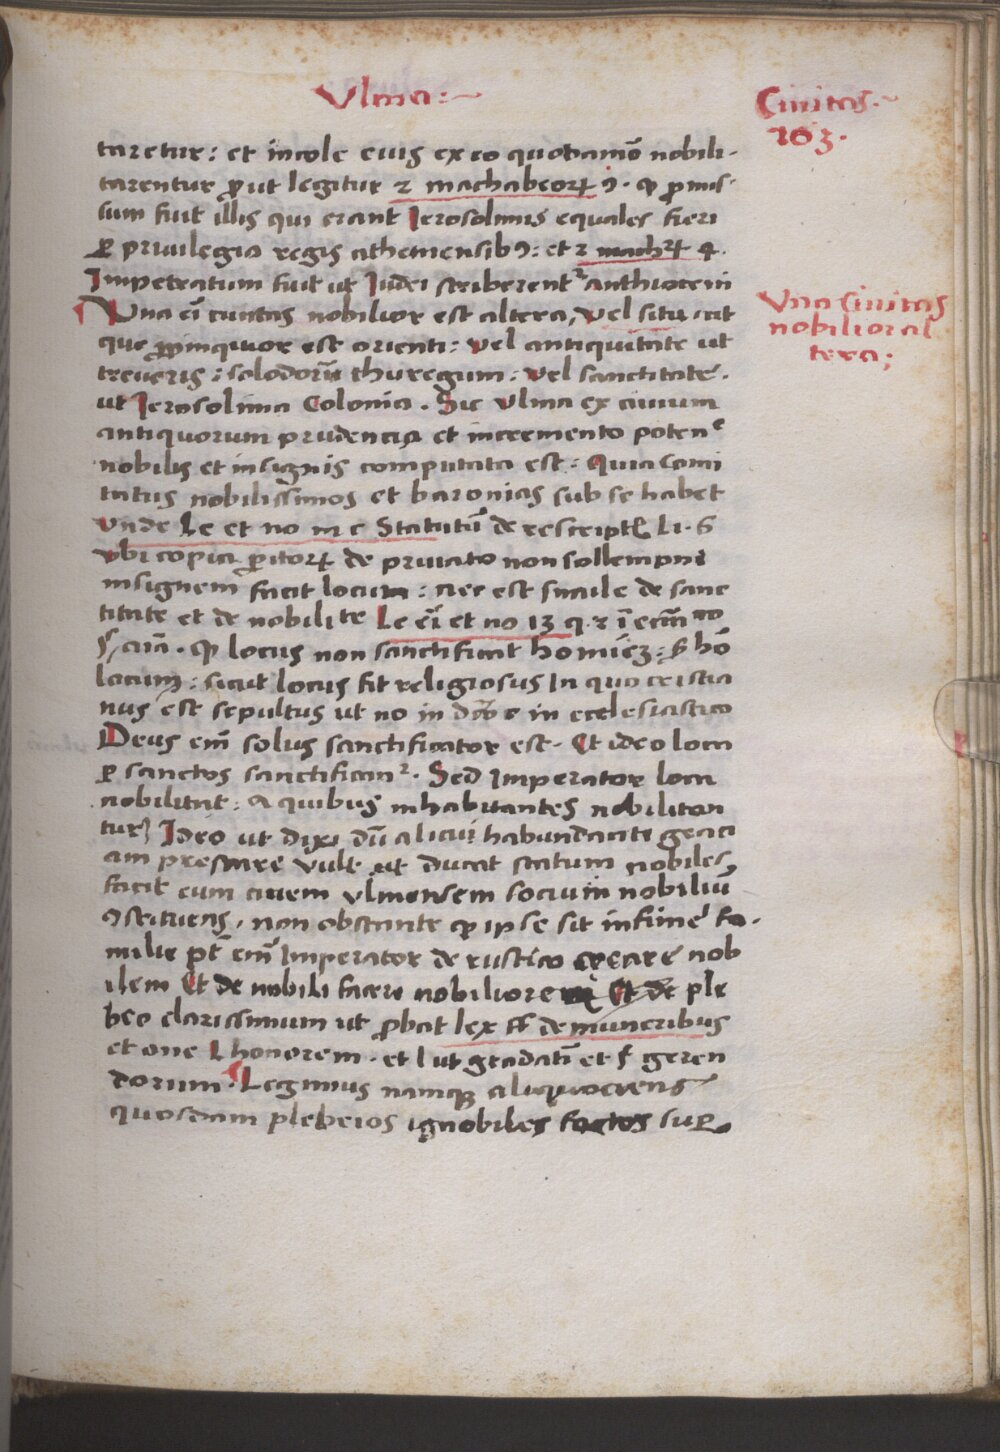 Vlma:~
Ciuitas.~
103.
taretur: et incole eius ex eo quodamō nobili-
tarentur ꝓut legitur 2 machabeorꝝ 9. ꝙ ꝓmis-
sum fuit illis qui erant Jerosolimis equales fieri
ꝑ priuilegia regis atheniensibꝰ: et 2 machꝝ 4.
Impetratum fuit ut Judei scriberent᷑ anthioceni
Vna ciuitas
nobilior al
tera;
Vna eī ciuitas nobilior est altera, vel situ ut
que ꝓpinquior est orienti: vel antiquitate ut
treueris: solodorū thuregum: vel sanctitate.
ut Jerosolima Colonia. Sic Vlma ex ciuium
antiquorum prudencia et incremento poten
nobilis et insignis computata est: Quia Comi
tatus nobilissimos et baronias sub se habet
vnde le et no in c Statutū de rescriptꝭ li. 6
vbi copia ꝑitorꝝ de priuato non sollempni
insignem facit locum: nec est simile de sanc
titate et de nobilite Le eī et no 13 q. 2
ꝙ locus non sanctificat homīeꝫ: ꝫ hō
locum: sicut locus fit religiosus In quo cristia
nus est sepultus ut no in in ecclesiastico
Deus em̄ solus sanctificator est. Et ideo loca
ꝑ sanctos sanctificant᷑. Sed Imperator loca
nobilitat: a quibus inhabitantes nobilitan
tur Ideo ut dixi dū alicui habundanti graci
am prestare vult ut ducat statum nobiles,
facit eum ciuem vlmensem socium nobiliū
ꝯstituens, non obstante ꝙ ipse sit infime fa-
milie pt̄ em̄ Imperator de rustico creare nob
ilem Et de nobili facere nobiliorem Et de ple
beo clarissimum ut ꝓbat lex ff de muneribus
et one l honorem. et l ut gradatī et ꝭ geren
dorum. Legimus namqꝫ aliquociens
quosdam plebeios ignobiles factos suꝑ